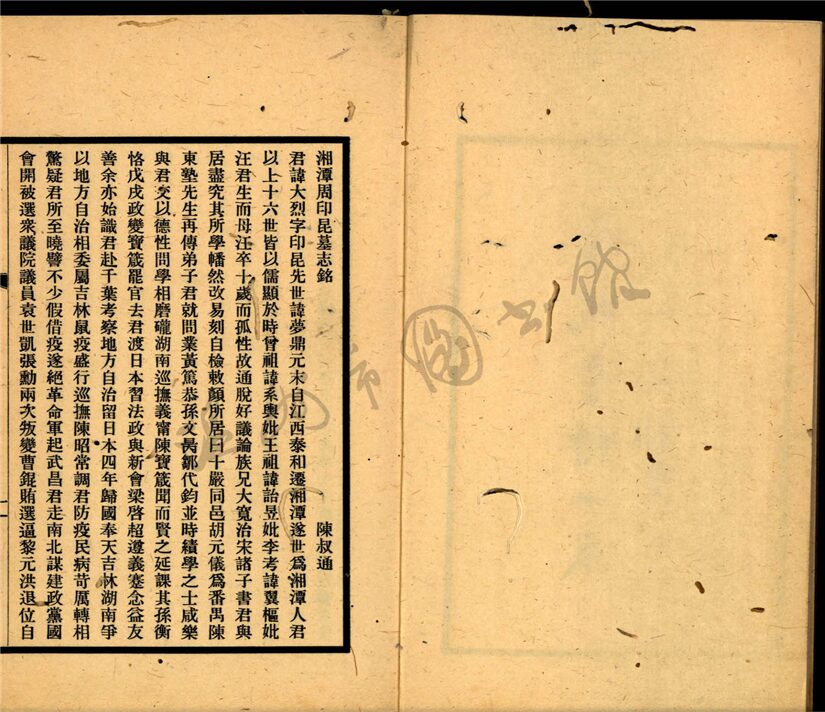 湘潭周印昆墓志銘 陳叔通
君諱大烈字印昆先世諱夢鼎元末自江西泰和遷湘潭遂世爲湘潭人君
以上十六世皆以儒顯於時曾祖諱系輿妣王祖諱詒昱妣李考諱翼樞妣
汪君生而母汪卒十歲而孤性故通脫好議論族兄大寬治宋諸子書君與
居盡究其所學幡然改易刻自檢敕顏所居曰十嚴同邑胡元儀爲番禺陳
東塾先生再傳弟子君就問業黃篤恭孫文昺鄒代鈞並時績學之士咸樂
與君交以德性問學相磨礲湖南巡撫義甯陳寶箴聞而賢之延課其孫衡
恪戊戌政變寶箴罷官去君渡日本習法政與新會梁啓超遵義蹇念益友
善余亦始識君赴千葉考察地方自治留日本四年歸國奉天吉林湖南爭
以地方自治相委屬吉林鼠疫盛行巡撫陳昭常調君防疫民病苛厲轉相
驚疑君所至曉譬不少假借疫遂絕革命軍起武昌君走南北謀建政黨國
會開被選衆議院議員袁世凱張勳兩次叛變曹錕賄選逼黎元洪退位自
圖